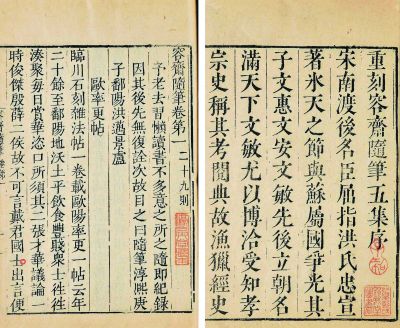 重刻容齋隨筆五集序
宋南渡後名臣屈指洪氏忠宣
著氷天之節與蘇屬國爭光其
子文惠文安文敏先後立朝名
滿天下文敏尤以博洽受知孝
宗史稱其考閱典故漁獵經史
容齋隨筆卷第一 二十九則
予老去習懶讀書不多意之所之隨即紀錄
因其後先無復詮次故目之曰隨筆淳熙庚
子鄱陽洪邁景盧
歐率更帖
臨川石刻雜法帖一卷載歐陽率更一帖云年
二十餘至鄱陽地沃土平飲食豐賤衆士往往
湊聚每日賞華恣口所須其二張才華議論一
時俊傑殷薛二侯故不可言戴君國士出言便